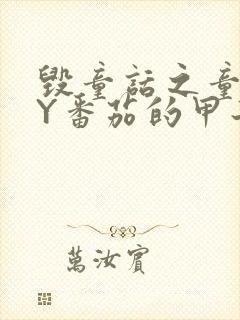 毁童话之童
Y番茄的甲
萬汝賓